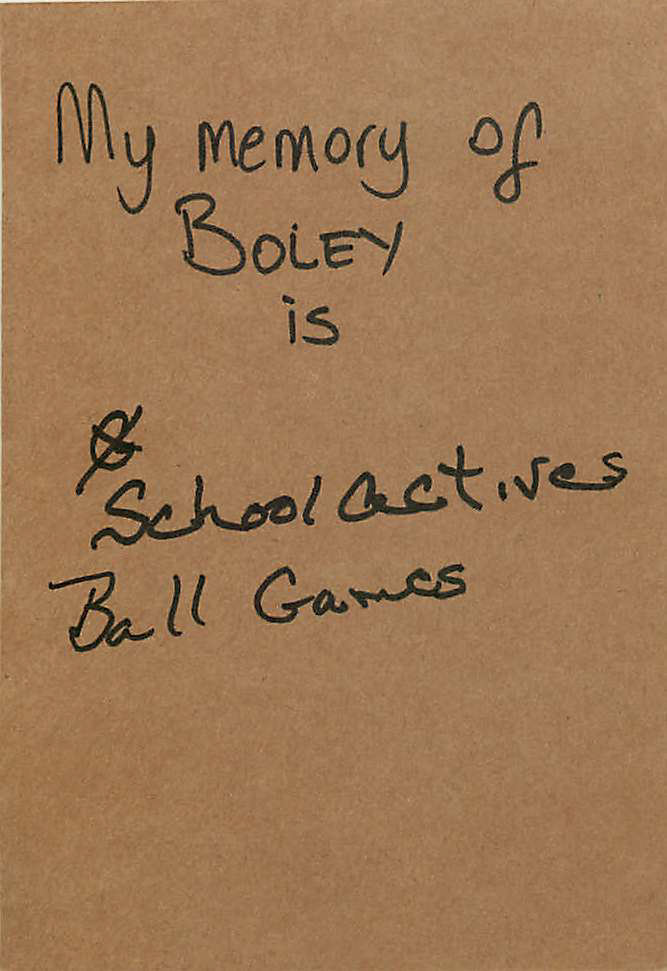 My memory of
BOLEY
is
School actives
Ball Games